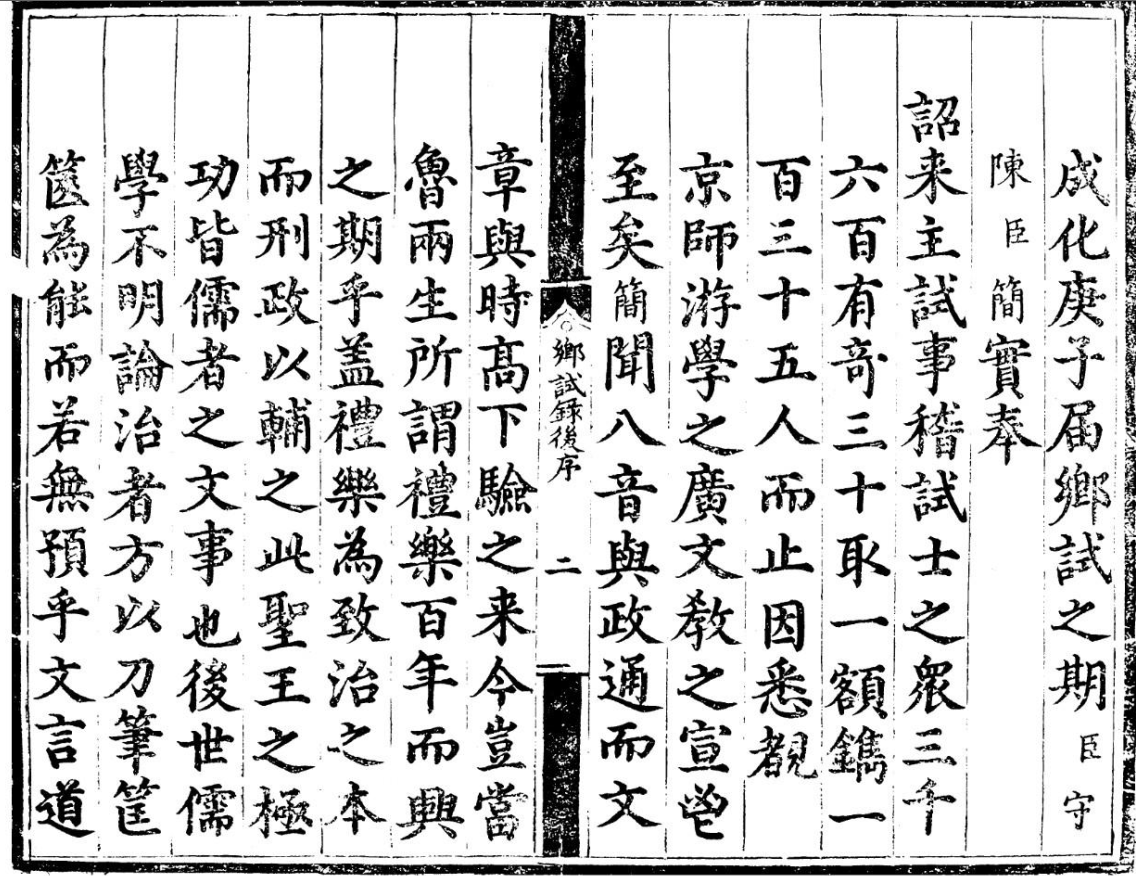 成化庚子届鄉試之期臣守
陳臣簡實奉
詔来主試事稽試士之衆三千
六百有奇三十取一額鐫一
百三十五人而止因悉覩
京師游學之廣文教之宣鬯
至矣簡聞八音與政通而文
鄉試録後序 二
章與時髙下驗之来今豈當
魯兩生所謂禮樂百年而興
之期乎盖禮樂為致治之本
而刑政以輔之此聖王之極
功皆儒者之文事也後世儒
學不明論治者方以刀筆筐
篋為能而若無預乎文言道